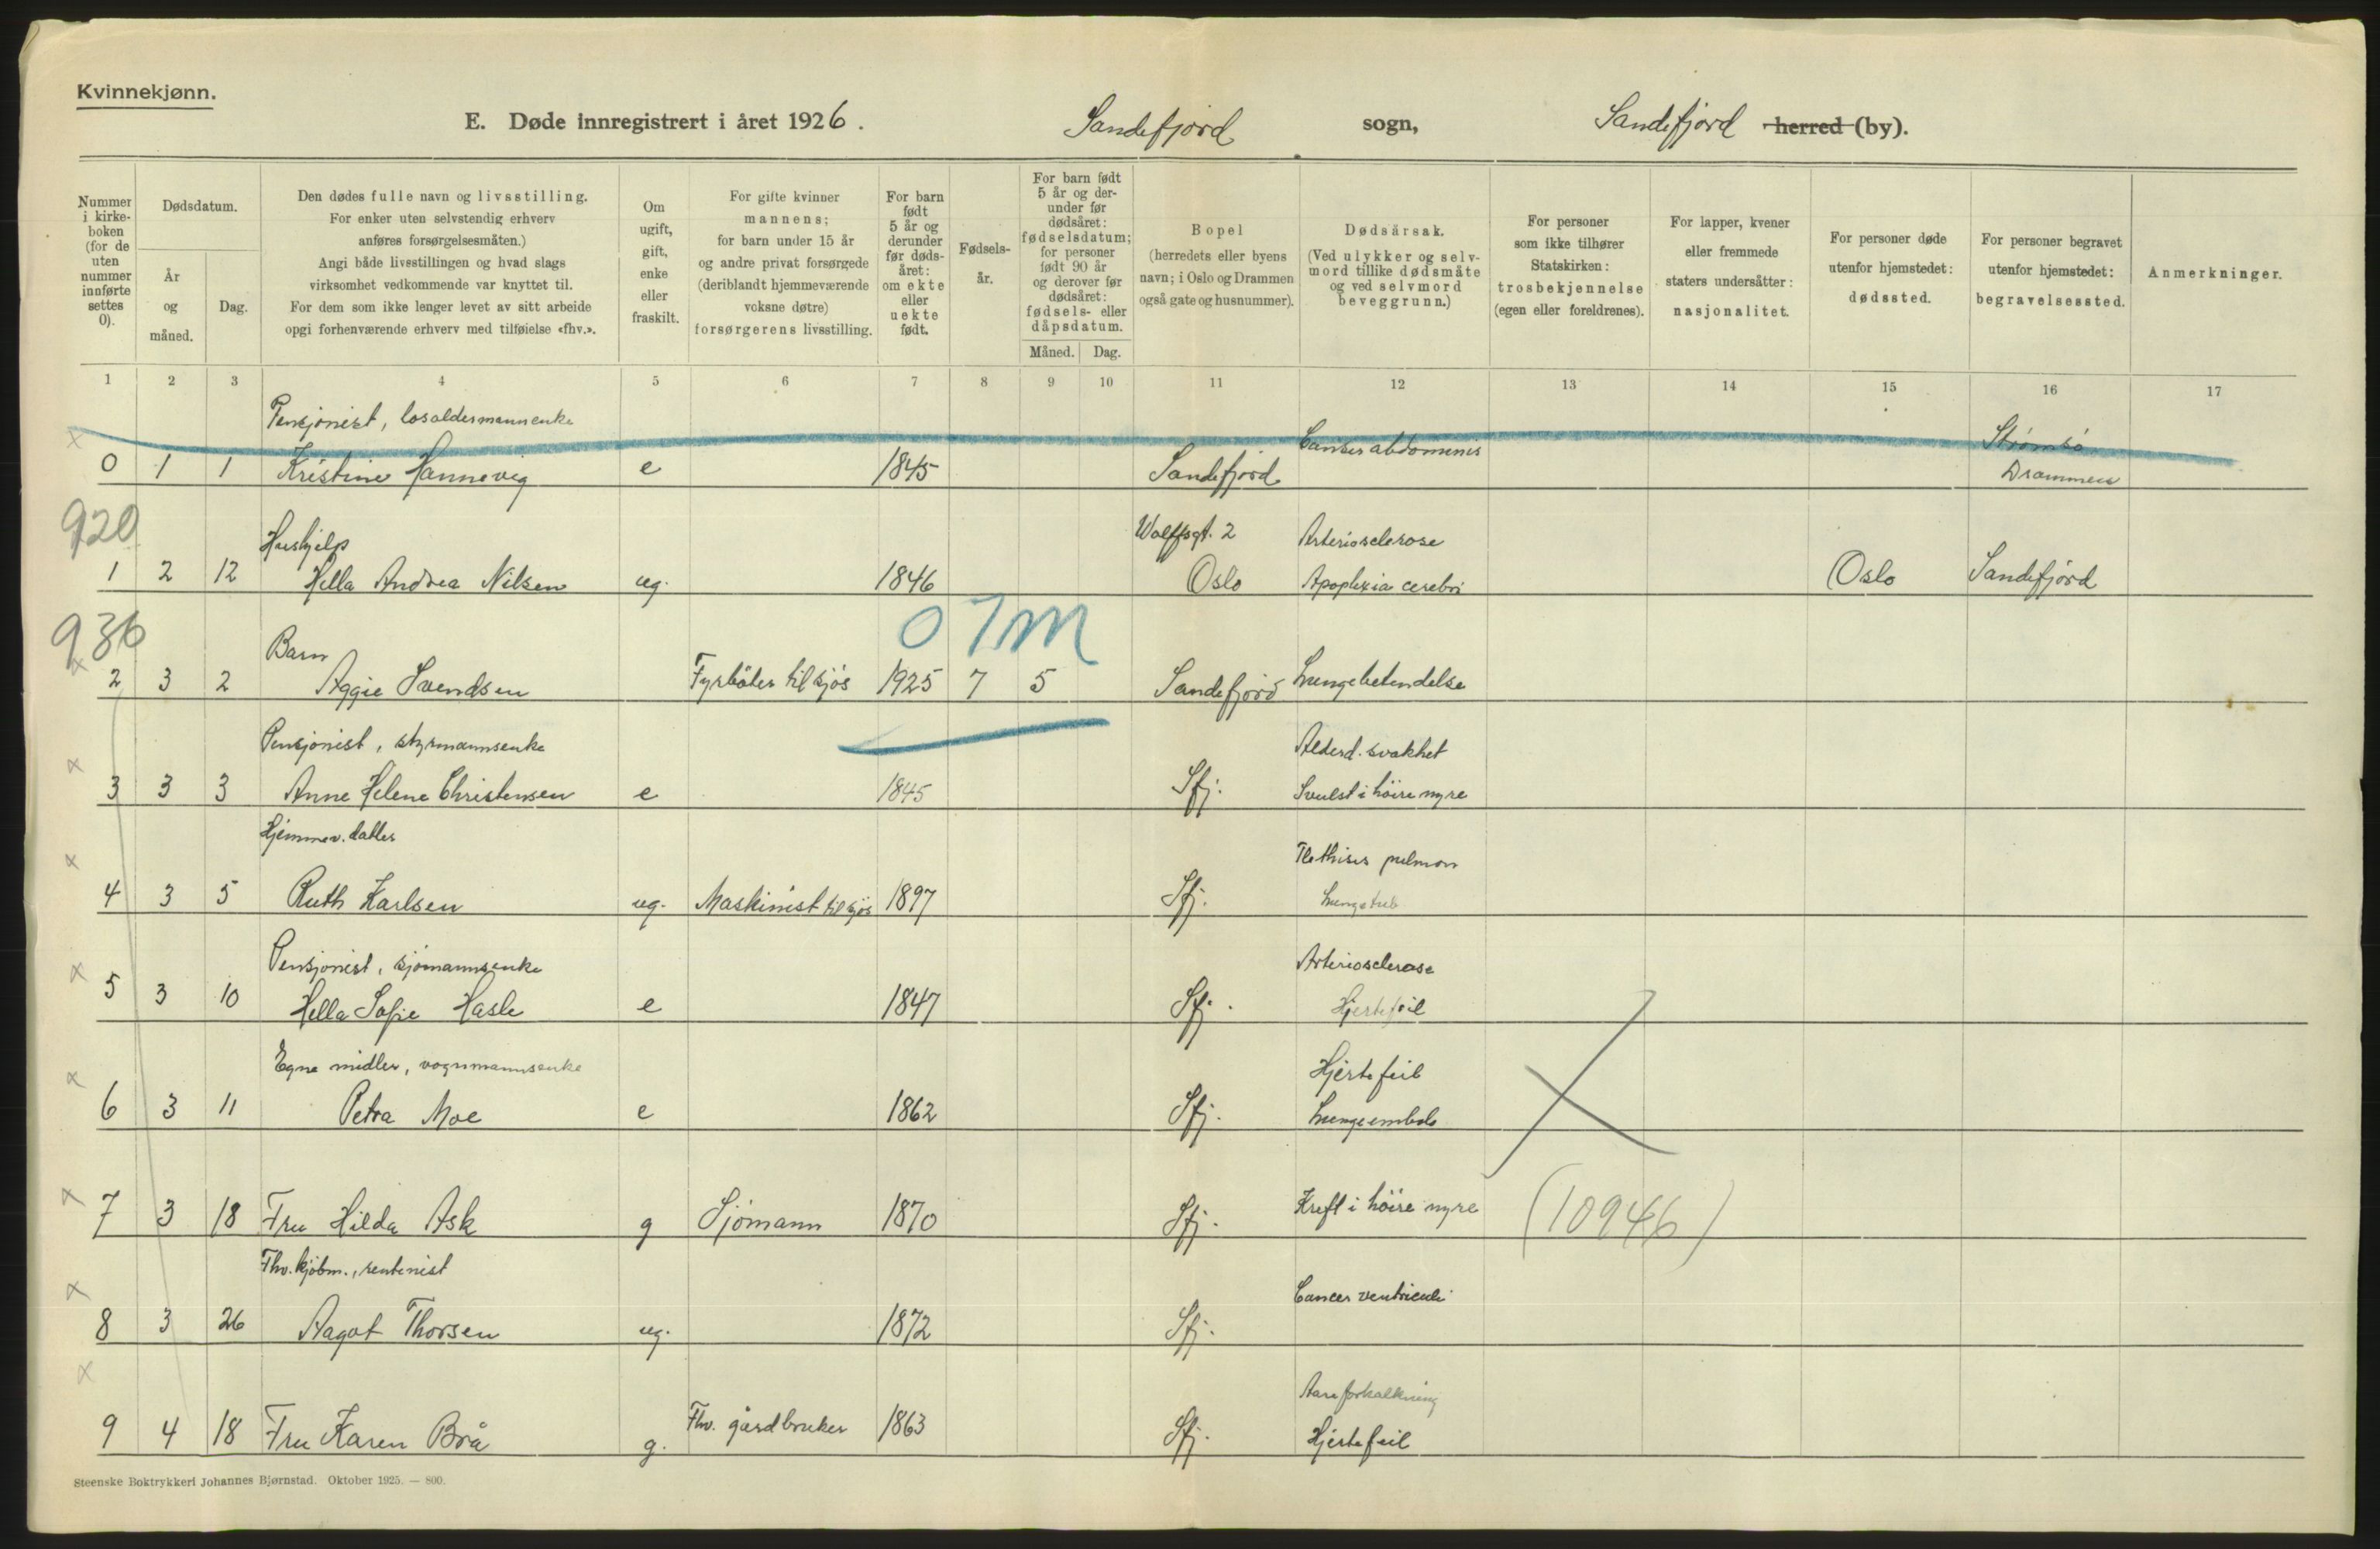 Kvinnekjønn.
E. Døde innregistrert i året 1926. Sandefjord sogn, Sandefjord herred (by).
Nummer i kirke- boken (for de uten nummer innførte settes 0).
Dødsdatum.
År og måned.
Dag.
Den dødes fulle navn og livsstilling.
For enker uten selvstendig erhverv
anføres forsørgelsesmåten.)
Angi både livsstillingen og hvad slags
virksomhet vedkommende var knyttet til.
For dem som ikke lenger levet av sitt arbeide
opgi forhenværende erhverv med tilføielse «fhv.».
Om ugift, gift, enke eller fraskilt.
For gifte kvinner
mannens;
for barn under 15 år
og andre privat forsørgede
(deriblandt hjemmeværende
voksne døtre)
forsørgerens livsstilling.
For barn født 5 år og derunder før døds- året: om ekte eller uekte født.
Fødsels- år.
For barn født 5 år og der- under før dødsåret: fødselsdatum; for personer født 90 år og derover før dødsåret: fødsels- eller dåpsdatum.
Måned. Dag.
Bopel
(herredets eller byens
navn; i Oslo og Drammen
også gate og husnummer).
Dødsårsak.
(Ved ulykker og selv-
mord tillike dødsmåte
og ved selvmord
beveggrunn.)
For personer
som ikke tilhører
Statskirken:
trosbekjennelse
(egen eller foreldrenes).
For lapper, kvener
eller fremmede
staters undersåtter:
nasjonalitet.
For personer døde
utenfor hjemstedet:
dødssted.
For personer begravet
utenfor hjemstedet:
begravelsessted.
Anmerkninger.
1 2 3 4 5 6 7 8 9 10 11 12 13 14 15 16 17
Pensjonist, losoldermannenke Canser abdominis Strømsö
x
0 1 1 Kristine Hannevig e 1845 Sandefjord Drammen
920 Hushjelp Wolffsgt. 2 Arteriosclerose
1 2 12 Hella Andrea Nilsen ug. 1846 Oslo Apoplexia cerebri Oslo Sandefjord
936 Barn 0 7m
x
2 3 2 Aggie Svendsen Fyrböter til sjös 1925 7 5 Sandefjord Lungebetendelse
Pensjonist, styrmannsenke Alderd. svakhet
x
3 3 3 Anne Helene Christensen e 1845 Sfj. Svulst i höire nyre
Hjemmev. datter
x Pthisis pulmon
4 3 5 Ruth Karlsen ug. Maskinist til sjös 1897 Sfj. Lungetub
Pensjonist, sjömannsenke Arteriosclerose
x
5 3 10 Hella Sofie Hasle e 1847 Sfj. Hjertefeil
Egne midler, vognmannsenke Hjertefeil
x
6 3 11 Petra Moe e 1862 Sfj. Lungeemboli
x
7 3 18 Fru Hilda Ask g Sjömann 1870 Sfj. Kreft i höire nyre (10946)
Fhv. kjöbm., rentenist
x Cancer ventriculi
8 3 26 Aagot Thorsen ug. 1872 Sfj.
x Aareforkalkning
9 4 18 Fru Karen Brå g. Fhv. gårdbruker 1863 Sfj. Hjertefeil
Steenske Boktrykkeri Johannes Bjørnstad. Oktober 1925. — 800.